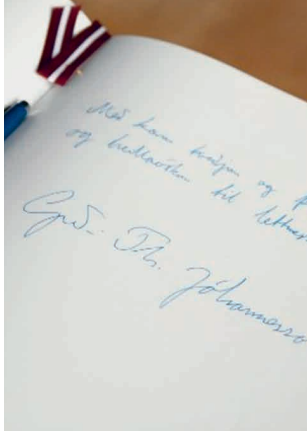 Með kærri kveðju og þ
og heillaóskum til lettnes
Guð. Th. Jóhannesso